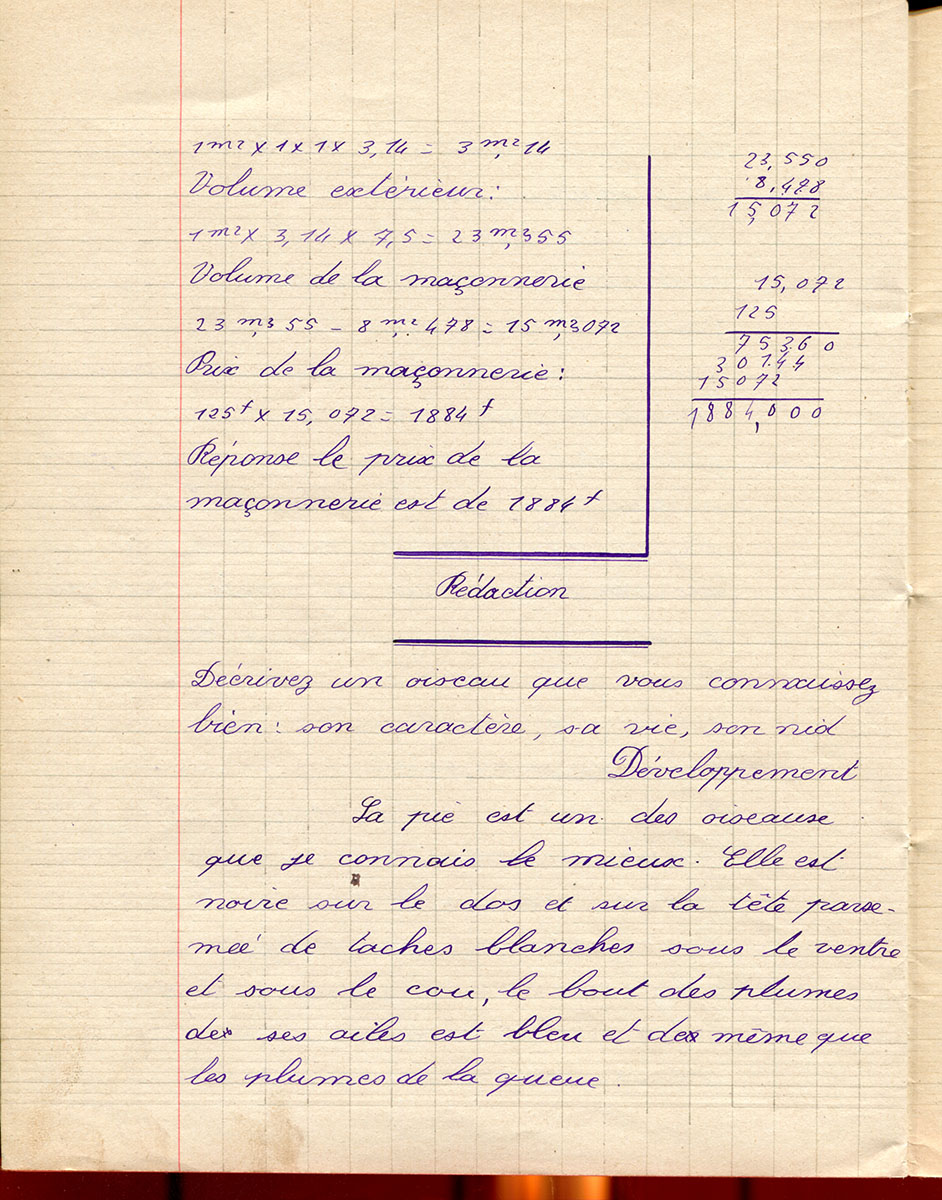 1m² x 1 x 1 x 3,14 = 3m²,14
Volume extérieur :
1m² x 3,14 x 7,5 = 23m,355
Volume de la maçonnerie
23m,3 55 - 8m,² 478 = 15m,3072
Prix de la maçonnerie :
125f x 15,072 = 1884f
Réponse le prix de la
maçonnerie est de 1884f
23,550
8,478
15,072
15,072
125
75360
30144
15072
1884,000
Rédaction
Décrivez un oiseau que vous connaissez
bien : son caractère, sa vie, son nid
Développement
La pie est un des oiseause
que je connais le mieux. Elle est
noire sur le dos et sur la tête parse-
meé de taches blanches sous le ventre
et sous le cou, le bout des plumes
de ses ailes est bleu et de même que
les plumes de la queue.